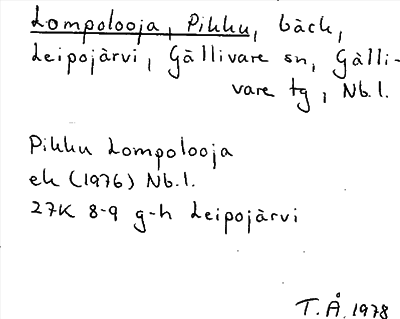 Lompolooja, Pikku, bäck,
Leipojärvi, Gällivare sn, Gälli-
vare tg, Nb.l.
Pikku Lompolooja
ek (1976) Nb.l.
27K 8-9 g-h Leipojärvi
T.Å. 1978